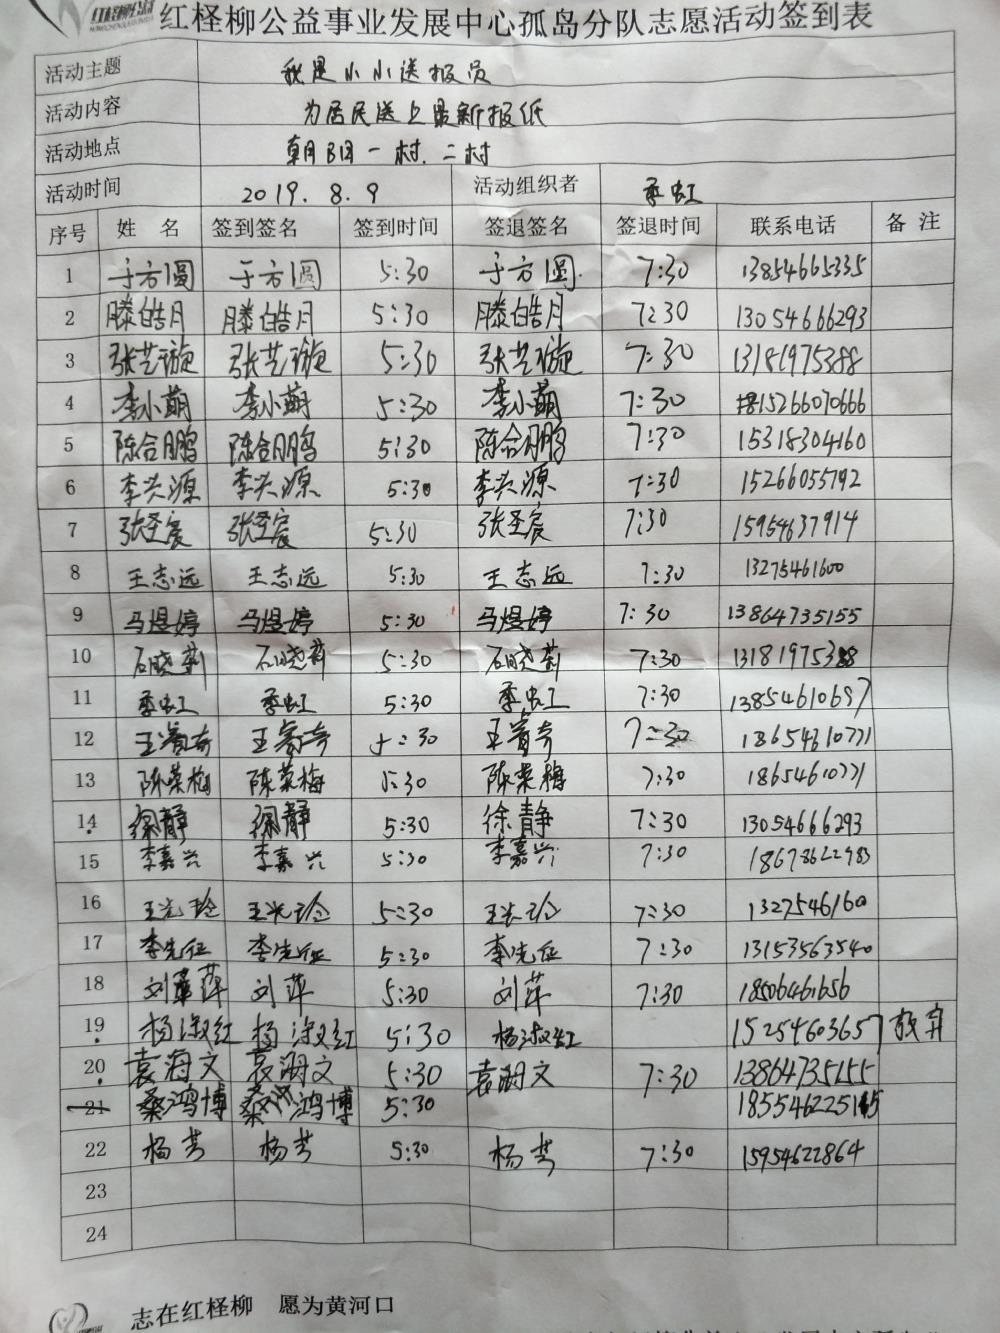 红柽柳公益事业发展中心孤岛分队志愿活动签到表
活动主题 我是小小送报员
活动内容 为居民送上最新报纸
活动地点 朝阳一村、二村
活动时间 2019.8.9 活动组织者 季虹
序号 姓名 签到签名 签到时间 签退签名 签退时间 联系电话 备注
1 于方圆 于方圆 5:30 于方圆 7:30 13854665335
2 滕皓月 滕皓月 5:30 滕皓月 7:30 13054666293
3 张艺璇 张艺璇 5:30 张艺璇 7:30 13181975388
4 李小萌 李小萌 5:30 李小萌 7:30 15266070666
5 陈合鹏 陈合鹏 5:30 陈合鹏 7:30 15318304160
6 李兴源 李兴源 5:30 李兴源 7:30 15266055792
7 张圣宸 张圣宸 5:30 张圣宸 7:30 15954637914
8 王志远 王志远 5:30 王志远 7:30 13275461600
9 马煜婷 马煜婷 5:30 马煜婷 7:30 13864735155
10 石晓莉 石晓莉 5:30 石晓莉 7:30 13181975388
11 季虹 季虹 5:30 季虹 7:30 13854610697
12 王睿奇 王睿奇 5:30 王睿奇 7:30 18654610771
13 陈荣梅 陈荣梅 5:30 陈荣梅 7:30 18654610771
14 徐静 徐静 5:30 徐静 7:30 13054666293
15 李嘉兴 李嘉兴 5:30 李嘉兴 7:30 18678622983
16 王光玲 王光玲 5:30 王光玲 7:30 1327546160
17 李先征 李先征 5:30 李先征 7:30 13153563540
18 刘萍 刘萍 5:30 刘萍 7:30 18506461656
19 杨淑红 杨淑红 5:30 杨淑红 15254603657 放弃
20 袁海文 袁海文 5:30 袁海文 7:30 13864735155
21 桑鸿博 桑鸿博 5:30
22 杨芳 杨芳 5:30 杨芳 7:30 15954622864
23
24
志在红柽柳 愿为黄河口